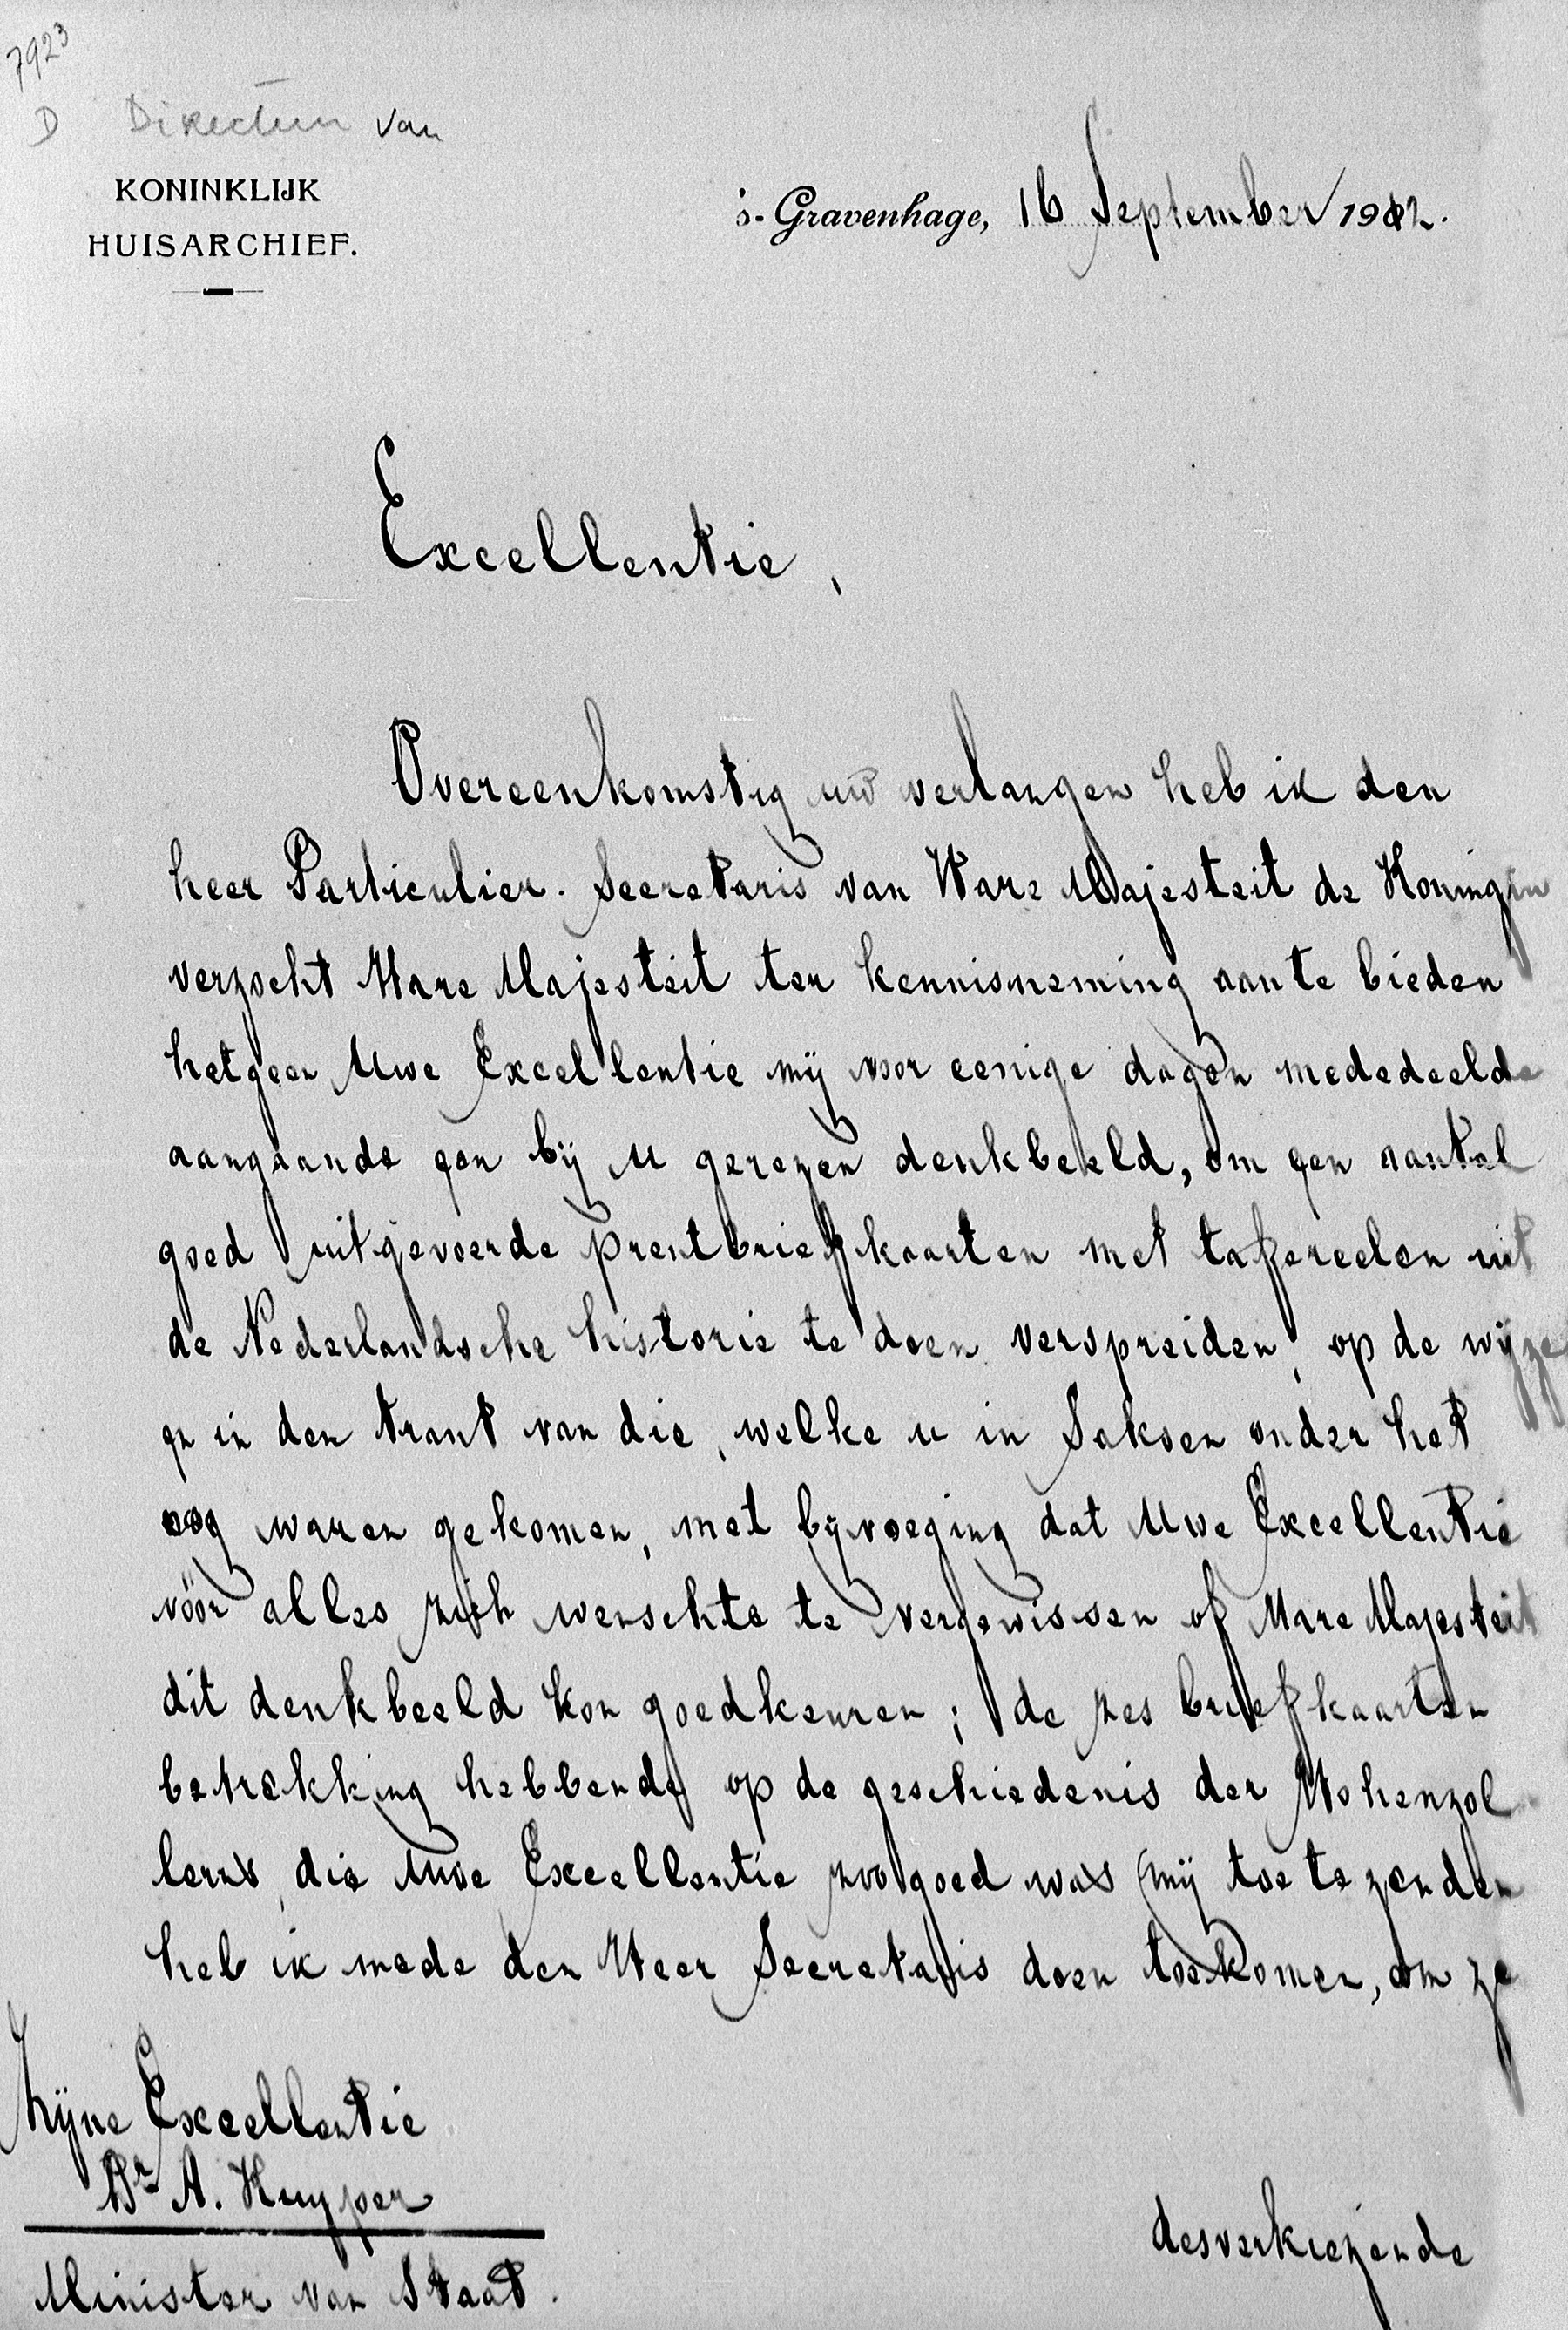 7923
D Directeur van
KONINKLIJK
HUISARCHIEF.
's-Gravenhage, 16 September 1912.
Excellentie,
Overeenkomstig uw verlangen heb ik den
heer Particulier. Secretaris van Hare Majesteit de Koningin
verzocht Hare Majesteit ter kennisneming aan te bieden
hetgeen Uwe Excellentie mij voor eenige dagen mededeelde
aangaande een bij u gerezen denkbeeld, om een aantal
goed uitgevoerde prentbriefkaarten met tafereelen uit
de Nederlandsche historie te doen verspreiden, op de wijze
en in den trant van die, welke u in Saksen onder het
oog waren gekomen, met bijvoeging dat Uwe Excellentie
vóór alles zich wenschte te vergewissen of Hare Majesteit
dit denkbeeld kon goedkeuren; de zes briefkaarten
betrekking hebbende op de geschiedenis der Hohenzol
lerns, die Uwe Excellentie zoo goed was mij toe te zenden
heb ik mede den Heer Secretaris doen toekomen, om ze
Zijne Excellentie
Dr A. Kuyper
Minister van Staat.
desverkiezende